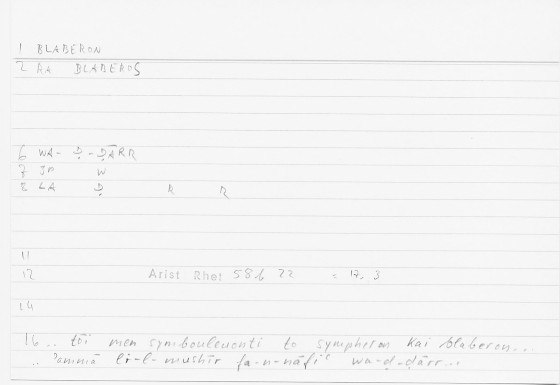 1 BLABERON
2 RA BLABEROS
6 WA- Ḍ-ḌĀRR
7 JP W
8 LA Ḍ R R
11
12 Arist Rhet 58b 22 = 17, 3
14
16 .. tōi men symbouleuonti to sympheron kai blaberon...
.. 'ammā li-l-mushīr fa-n-nāfiʿ wa-ḍ-ḍārr...